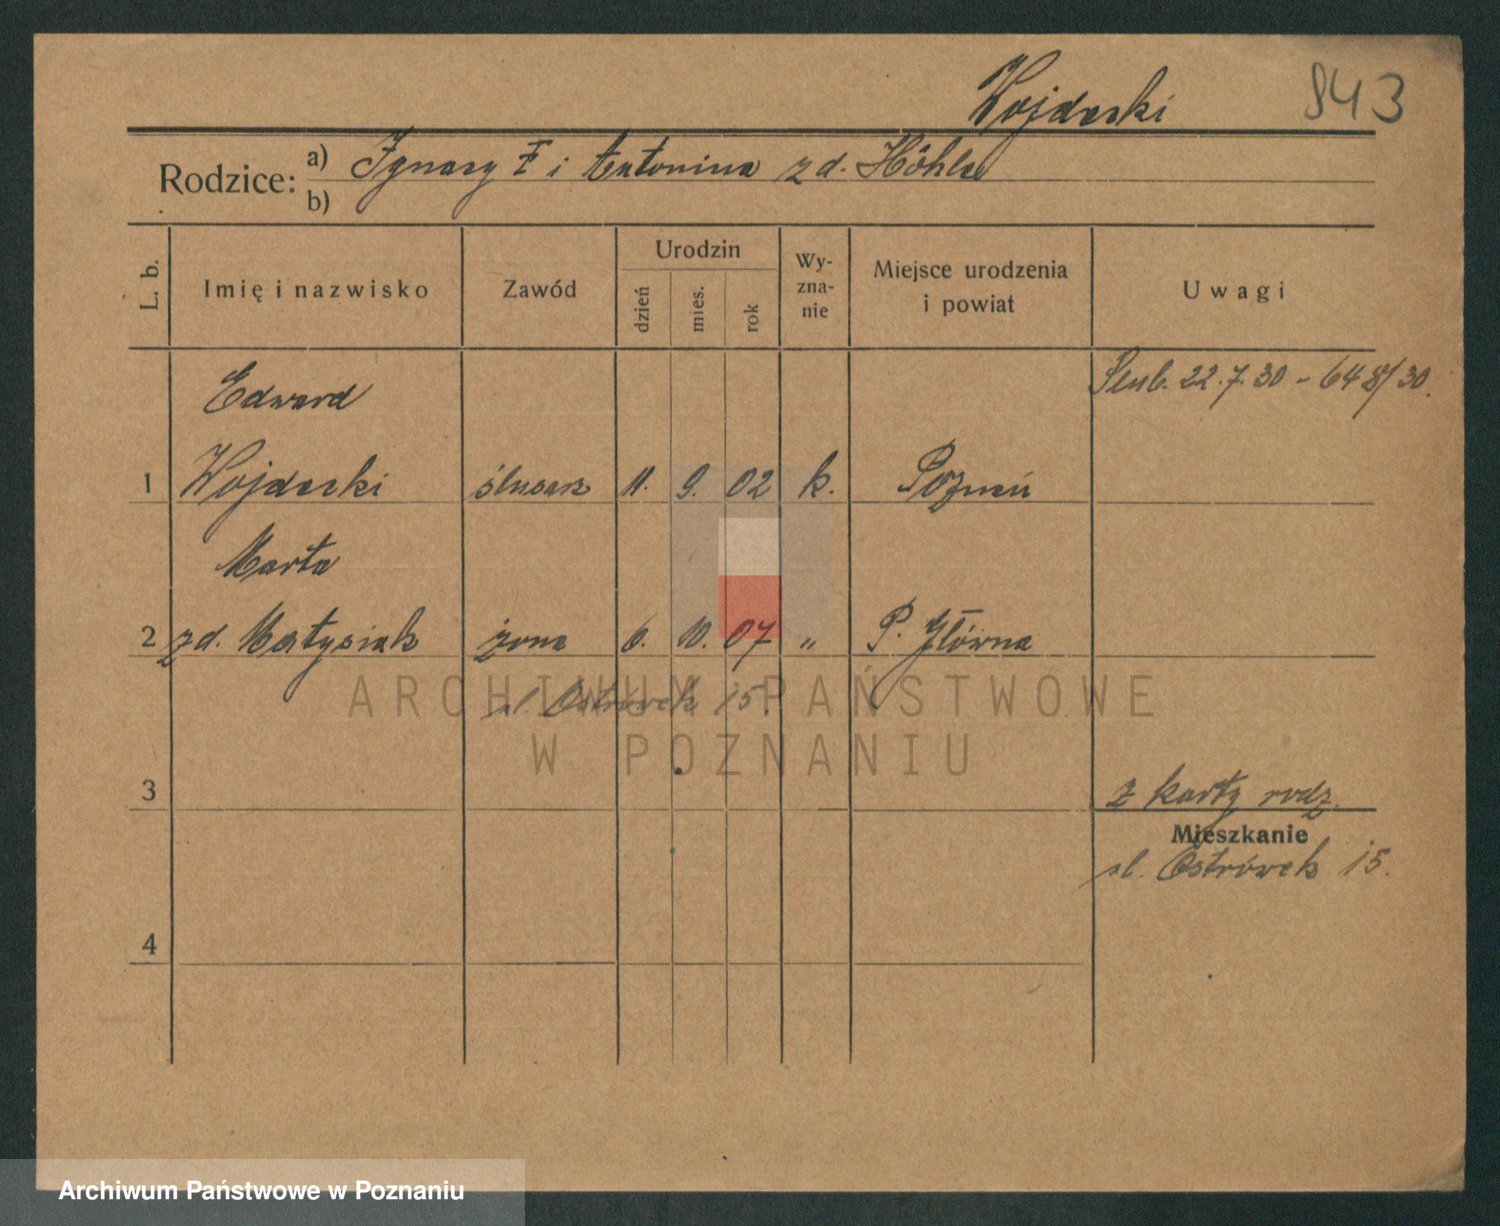 Wojdecki 843
Rodzice: a) Ignacy i Antonina zd. Höhle
b)
L. b. Imię i nazwisko Zawód Urodzin dzień mies. rok Wy-zna-nie Miejsce urodzenia i powiat Uwagi
Edward Ślub. 22.7.30 - 648/30.
1 Wojdecki ślusarz 11. 9. 02 k. Poznań
Marta
2 zd. Matysiak żona 6. 10. 07 " P. Główna
ul. Ostrówek 15.
ARCHIWUM PAŃSTWOWE
W POZNANIU
3 z karty rodz.
Mieszkanie
ul. Ostrówek 15.
4
Archiwum Państwowe w Poznaniu